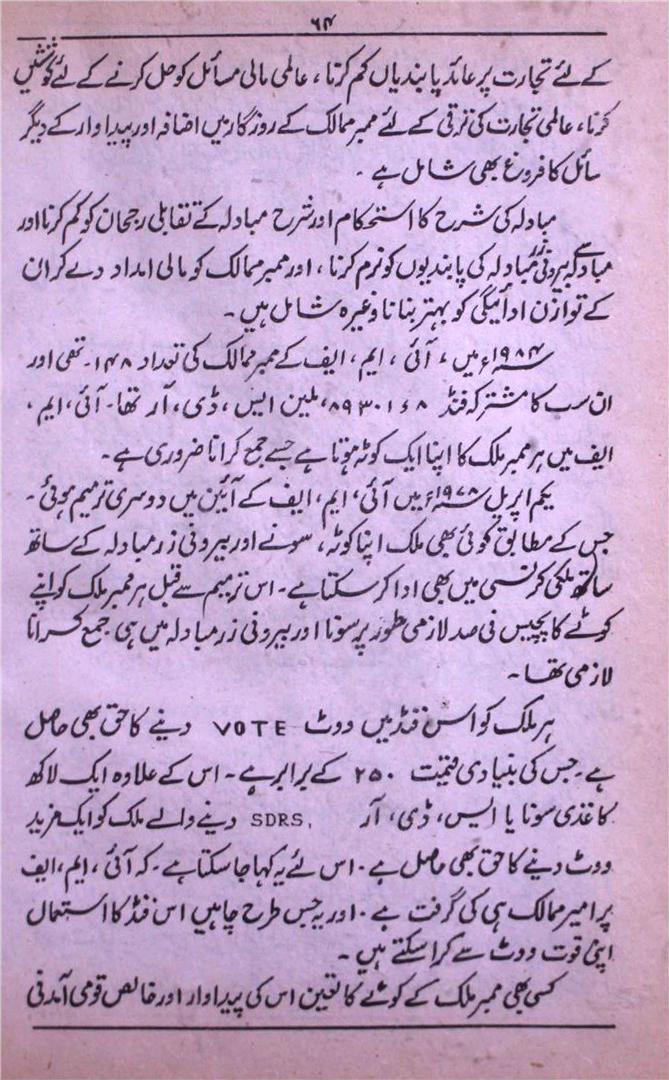 ۶۴
کے لئے تجارت پر عائد پابندیاں کم کرنا، عالمی مالی مسائل کو حل کرنے کے لئے کوششیں
کرنا، عالمی تجارت کی ترقی کے لئے ممبر ممالک کے روزگار میں اضافہ اور پیداوار کے دیگر
سائل کا فروغ بھی شامل ہے۔
مبادلہ کی شرح کا استحکام اور شرح مبادلہ کے تقابلی رجحان کو کم کرنا اور
بیرونی زر مبادلہ کی پابندیوں کو نرم کرنا، اور ممبر ممالک کو مالی امداد دے کر ان
کے توازن ادائیگی کو بہتر بنانا وغیرہ شامل ہیں۔
۱۹۸۴ء میں، آئی، ایم، ایف کے ممبر ممالک کی تعداد ۱۴۸ تھی اور
ان سب کا مشترکہ فنڈ ۸۹۳۰۱۶۸ ملین ایس، ڈی، آر تھا۔ آئی، ایم،
ایف میں ہر ممبر ملک کا اپنا ایک کوٹہ ہوتا ہے جسے جمع کرانا ضروری ہے۔
یکم اپریل ۱۹۷۸ء میں آئی، ایم، ایف کے آئین میں دوسری ترمیم ہوئی۔
جس کے مطابق کوئی بھی ملک اپنا کوٹہ، سونے اور بیرونی زر مبادلہ کے ساتھ
ساتھ ملکی کرنسی میں بھی ادا کر سکتا ہے۔ اس ترمیم سے قبل ہر ممبر ملک کو اپنے
کوٹے کا پچیس فی صد لازمی طور پر سونا اور بیرونی زر مبادلہ میں ہی جمع کرانا
لازمی تھا۔
ہر ملک کو اس فنڈ میں ووٹ VOTE دینے کا حق بھی حاصل
ہے۔ جس کی بنیادی قیمت ۲۵۰ کے برابر ہے۔ اس کے علاوہ ایک لاکھ
کاغذی سونا یا ایس، ڈی، آر SDRS, دینے والے ملک کو ایک مزید
ووٹ دینے کا حق بھی حاصل ہے۔ اس لئے یہ کہا جا سکتا ہے۔ کہ آئی، ایم، ایف
پر امیر ممالک ہی کی گرفت ہے۔ اور یہ جس طرح چاہیں اس فنڈ کا استعمال
اپنی قوت ووٹ سے کرا سکتے ہیں۔
کسی بھی ممبر ملک کے کوٹے کا تعین اس کی پیداوار اور خالص قومی آمدنی